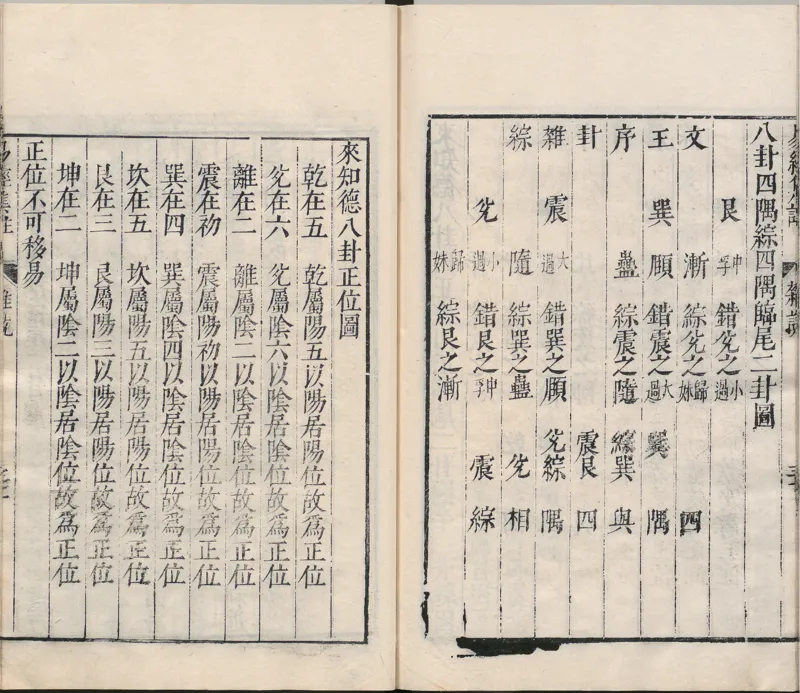 八卦四隅綜四隅歸尾二卦圖
艮 中孚 錯兌之小過
文 漸 綜兌之歸妹 四
王 巽 頤 錯震之大過 巽 隅
序 蠱 綜震之隨 綜巽與
卦 震艮四
雜 震 大過 錯巽之頤 兌綜隅
綜 隨 綜巽之蠱 兌相
兌 小過 錯艮之中孚 震綜
歸妹 綜艮之漸
來知德八卦正位圖
乾在五 乾屬陽五以陽居陽位故爲正位
兌在六 兌屬陰六以陰居陰位故爲正位
離在二 離屬陰二以陰居陰位故爲正位
震在初 震屬陽初以陽居陽位故爲正位
巽在四 巽屬陰四以陰居陰位故爲正位
坎在五 坎屬陽五以陽居陽位故爲正位
艮在三 艮屬陽三以陽居陽位故爲正位
坤在二 坤屬陰二以陰居陰位故爲正位
正位不可移易